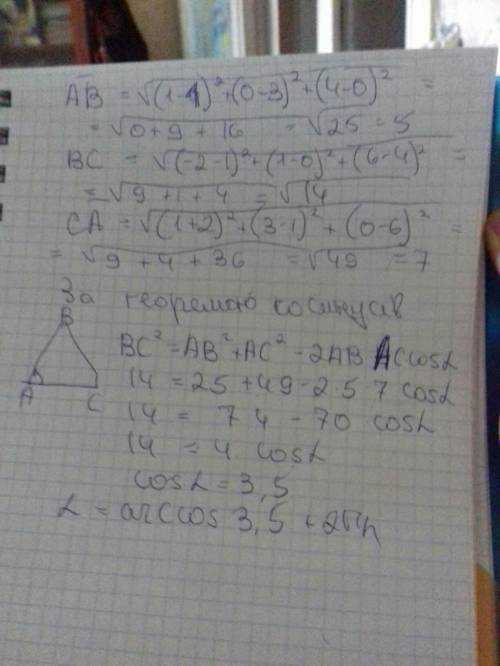 AB = √(1-1)²+(0-3)²+(4-0)² =
= √0+9+16 = √25 = 5
BC = √(-2-1)²+(1-0)²+(6-4)² =
= √9+1+4 = √14
CA = √(1+2)²+(3-1)²+(0-6)² =
= √9+4+36 = √49 = 7
За теоремою косинусів
B
A
C
BC² = AB²+AC² - 2AB ACcosα
14 = 25+49-2 5 7 cosα
14 = 74 - 70 cosα
14 = 4 cosα
cosα = 3,5
α = arccos 3,5 + 2πn